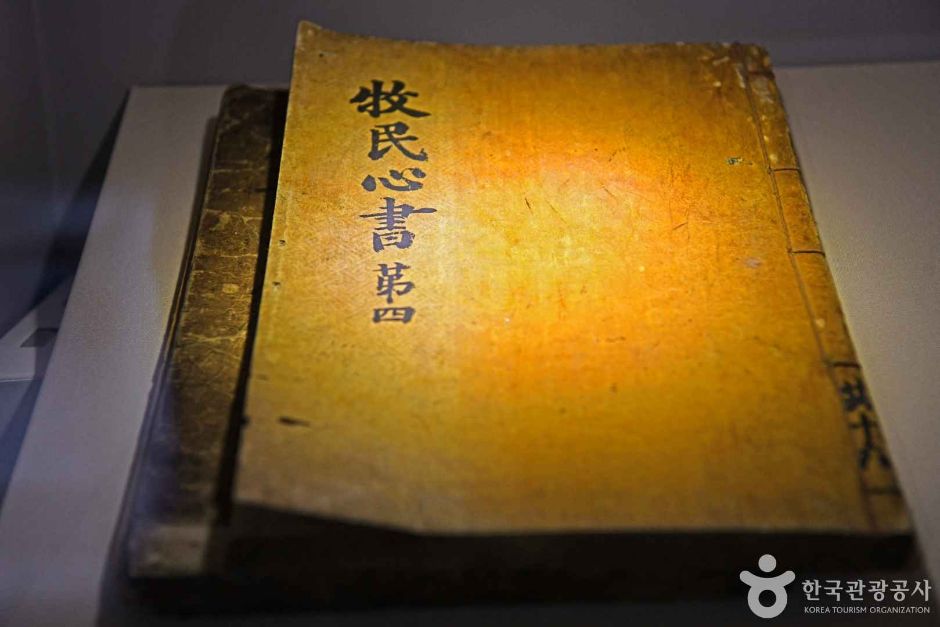 牧民心書 第四
共十八
한국관광공사
KOREA TOURISM ORGANIZATION